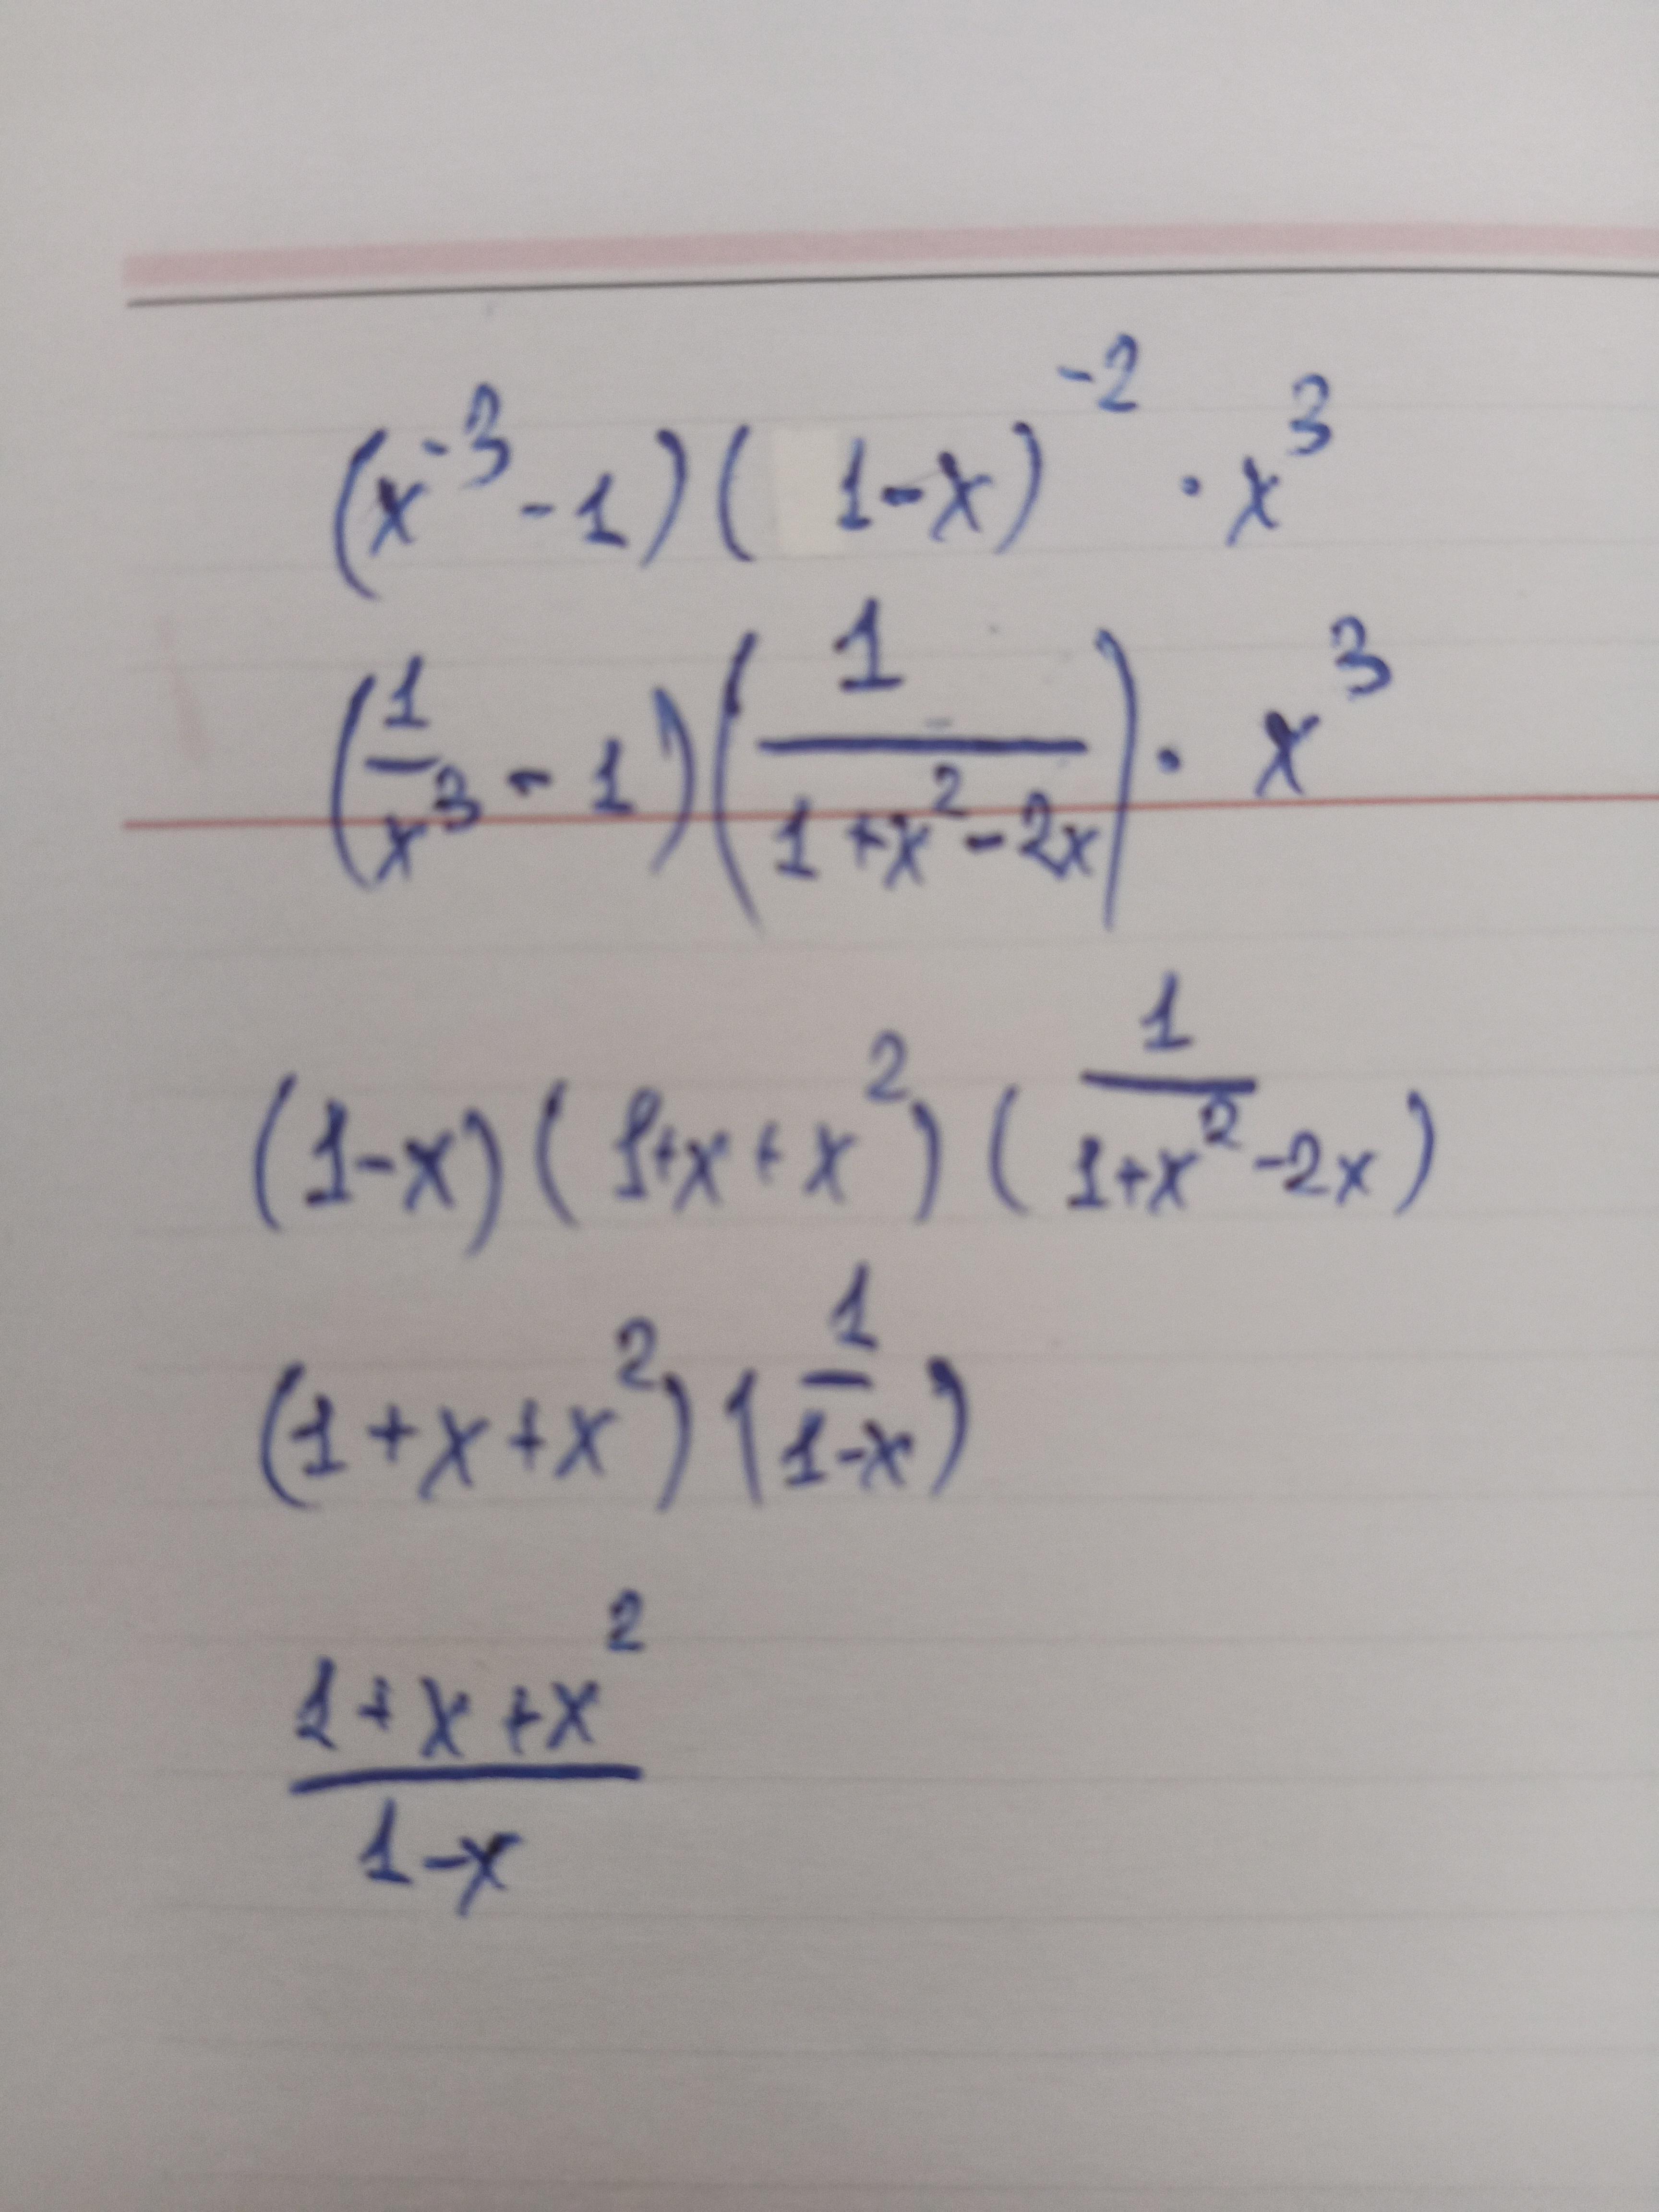 (x⁻³ - 1)(1-x)⁻² · x³
(1/x³ - 1)(1/(1+x²-2x)) · x³
(1-x)(1+x+x²)(1/(1+x²-2x))
(1+x+x²)(1/(1-x))
(1+x+x²)/(1-x)